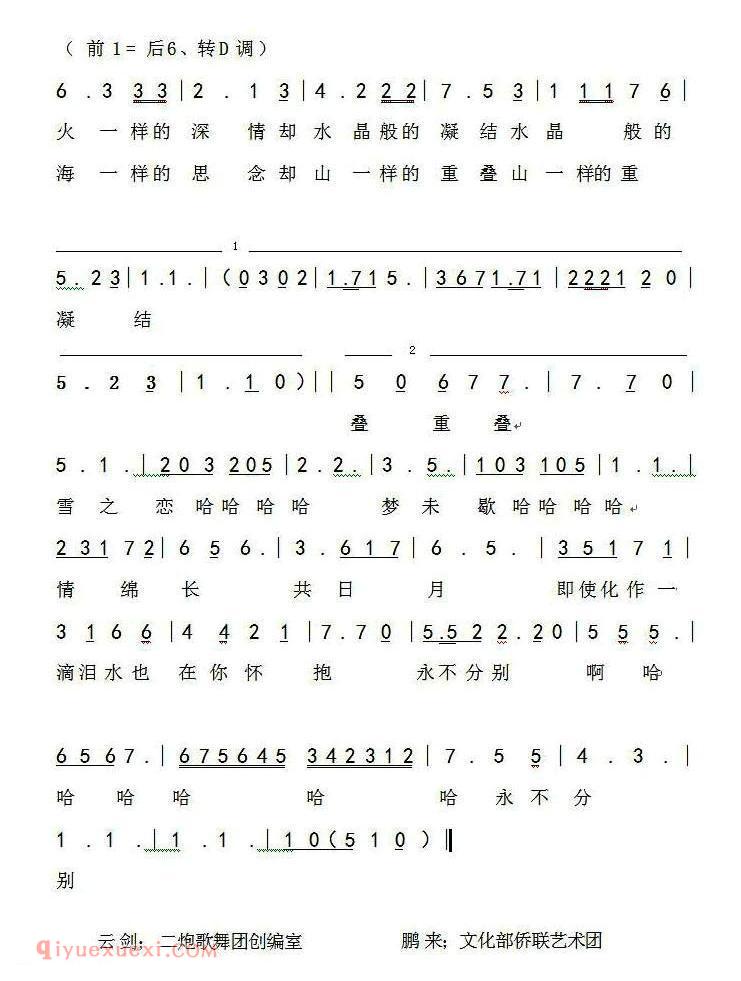 （ 前 1 = 后 6、转 D 调）
6 . 3 3 3 | 2 . 1 3 | 4 . 2 2 2 | 7 . 5 3 | 1 1 1 7 6 |
火 一 样 的 深 情 却 水 晶 般 的 凝 结 水 晶 般 的
海 一 样 的 思 念 却 山 一 样 的 重 叠 山 一 样 的 重
1
5 . 2 3 | 1 . 1 . | （ 0 3 0 2 | 1 . 7 1 5 . | 3 6 7 1 . 7 1 | 2 2 2 1 2 0 |
凝 结
5 . 2 3 | 1 . 1 0 ） | | 5 0 6 7 7 . | 7 . 7 0 |
2
叠 重 叠
5 . 1 . | 2 0 3 2 0 5 | 2 . 2 . | 3 . 5 . | 1 0 3 1 0 5 | 1 . 1 . |
雪 之 恋 哈 哈 哈 哈 梦 未 歇 哈 哈 哈 哈
2 3 1 7 2 | 6 5 6 . | 3 . 6 1 7 | 6 . 5 . | 3 5 1 7 1 |
情 绵 长 共 日 月 即 使 化 作 一
3 1 6 6 | 4 4 2 1 | 7 . 7 0 | 5 . 5 2 2 . 2 0 | 5 5 5 . |
滴 泪 水 也 在 你 怀 抱 永 不 分 别 啊 哈
6 5 6 7 . | 6 7 5 6 4 5 3 4 2 3 1 2 | 7 . 5 5 | 4 . 3 . |
哈 哈 哈 哈 哈 永 不 分
1 . 1 . | 1 . 1 . | 1 0 （ 5 1 0 ） ‖
别
云 剑： 二炮歌舞团创编室 鹏 来： 文化部侨联艺术团
qiyuexuexi.com